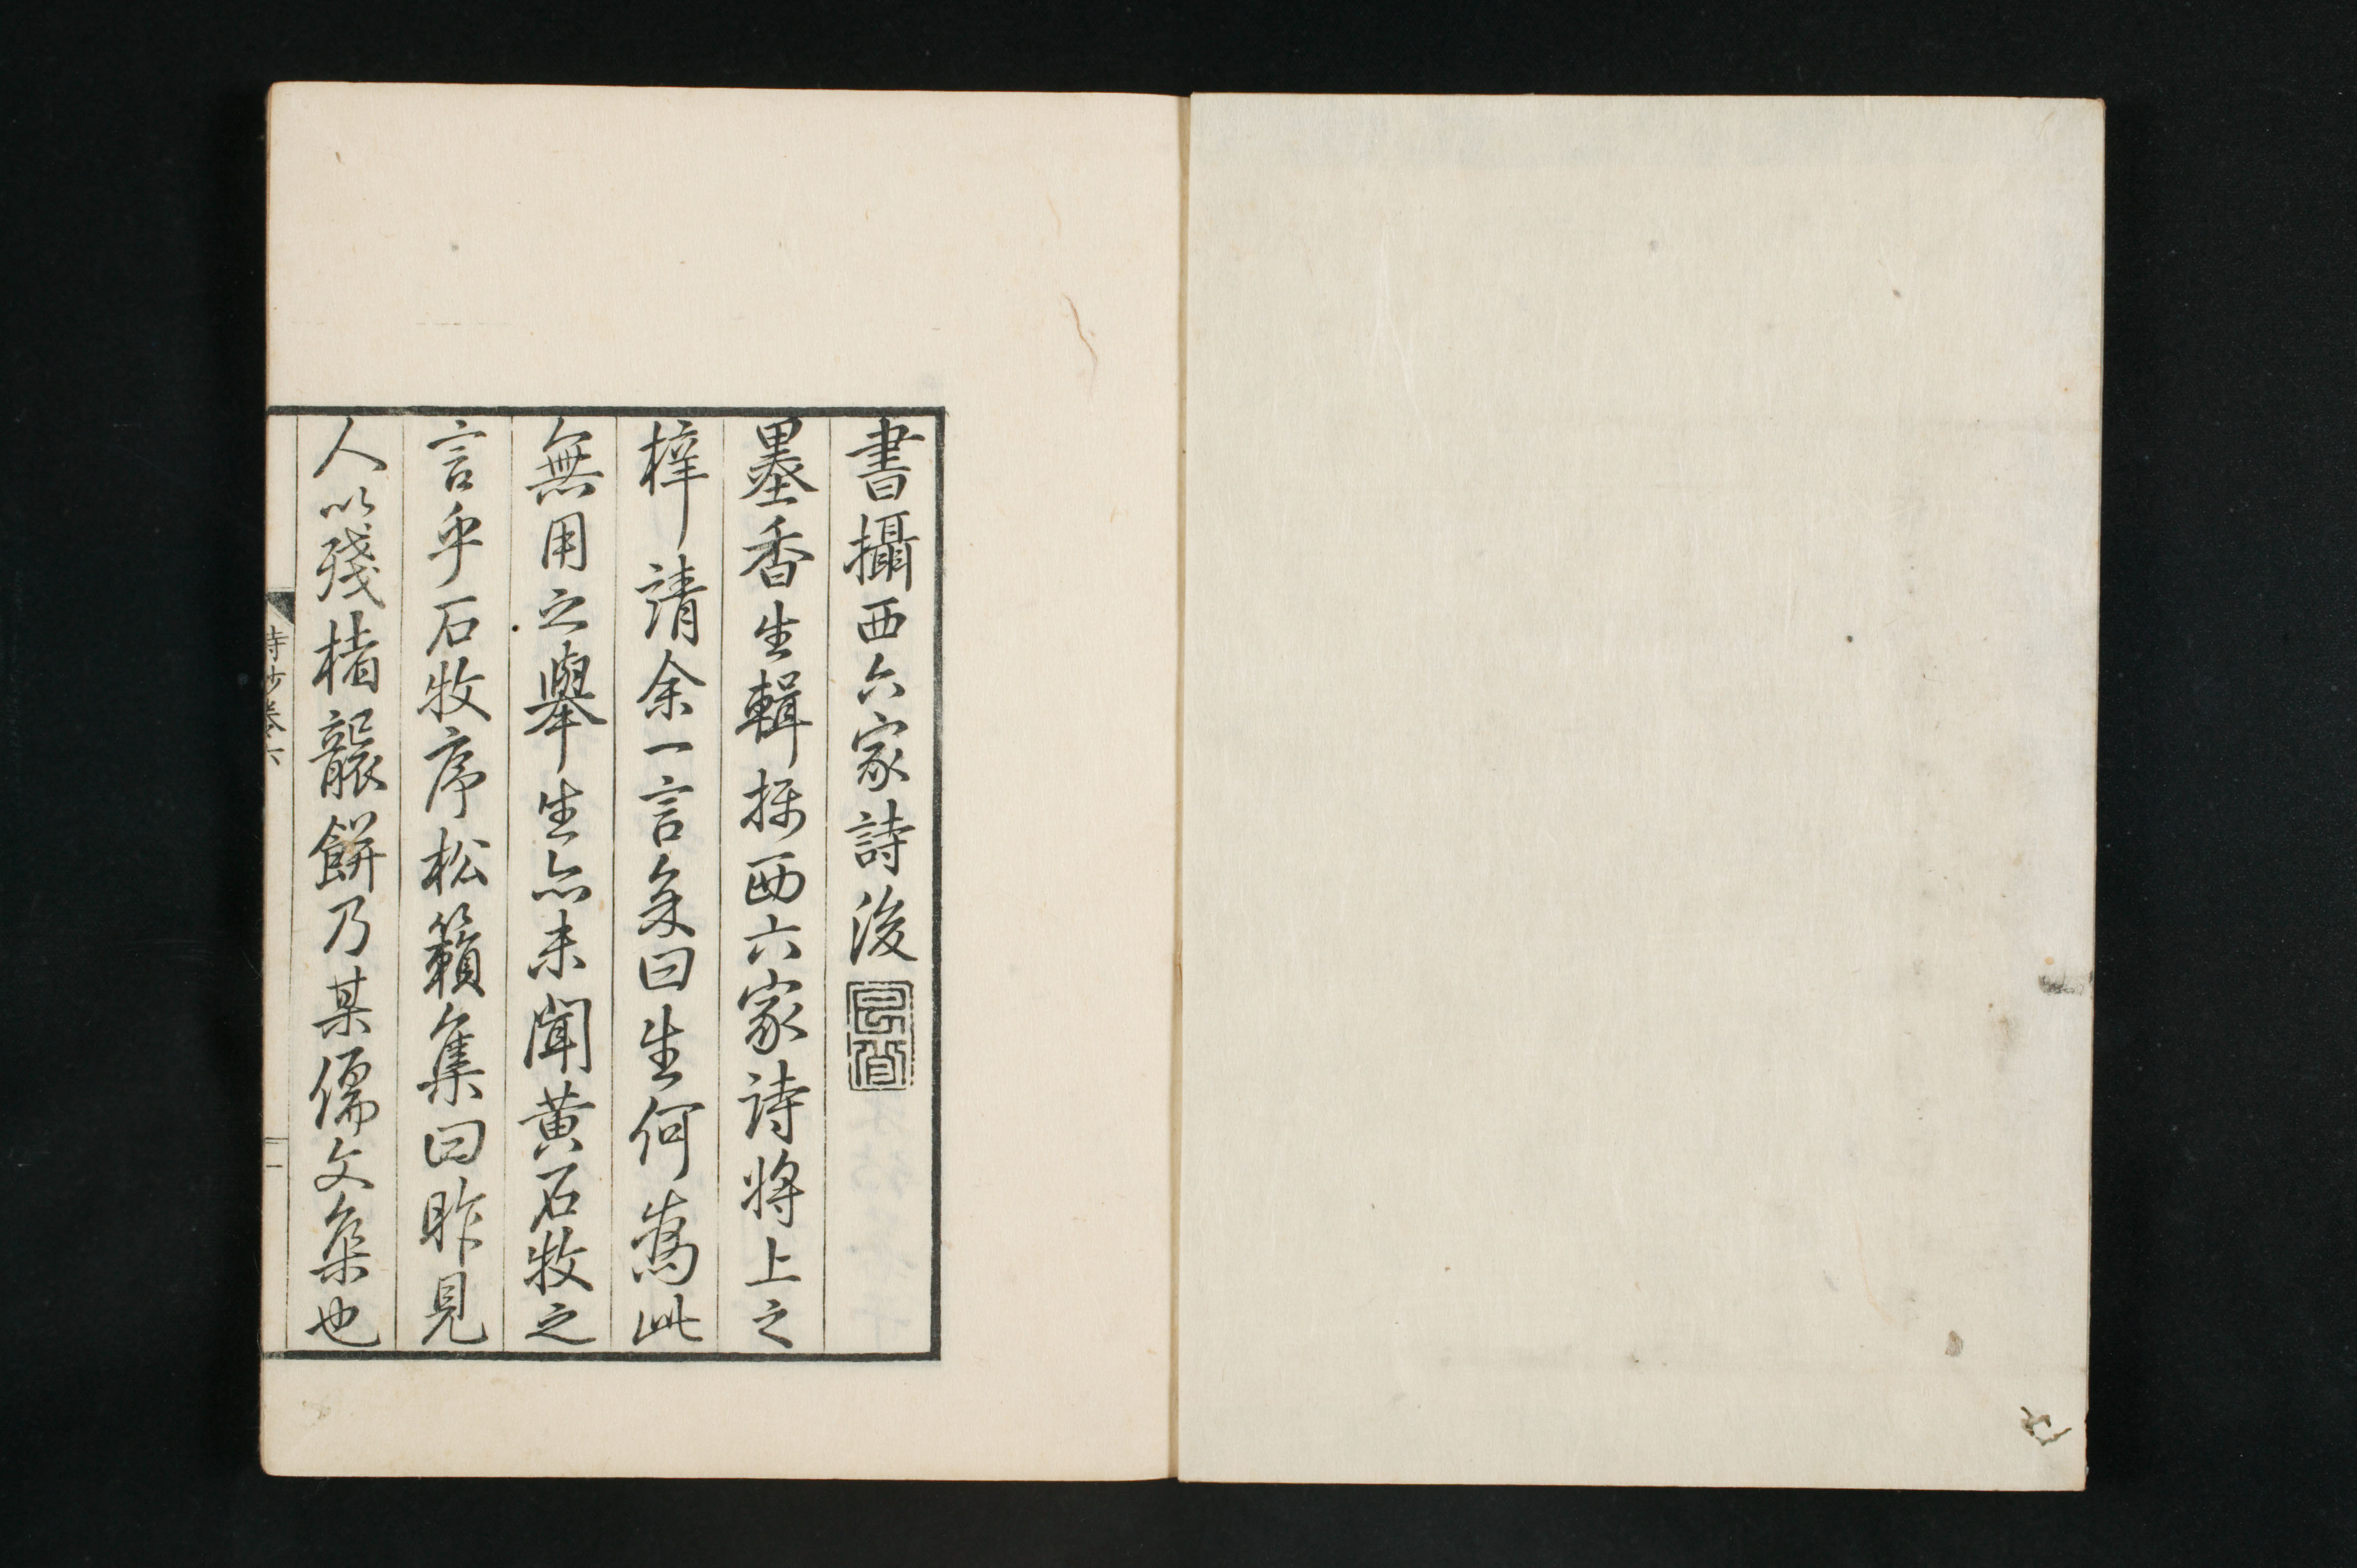 書攝西六家詩後
墨香生輯攝西六家詩將上之
梓請余一言矣曰生何為此
無用之舉生亦未聞黃石牧之
言乎石牧序松籟集曰昨見
人以殘楮裹餅乃某儒文集也
詩抄卷六
一